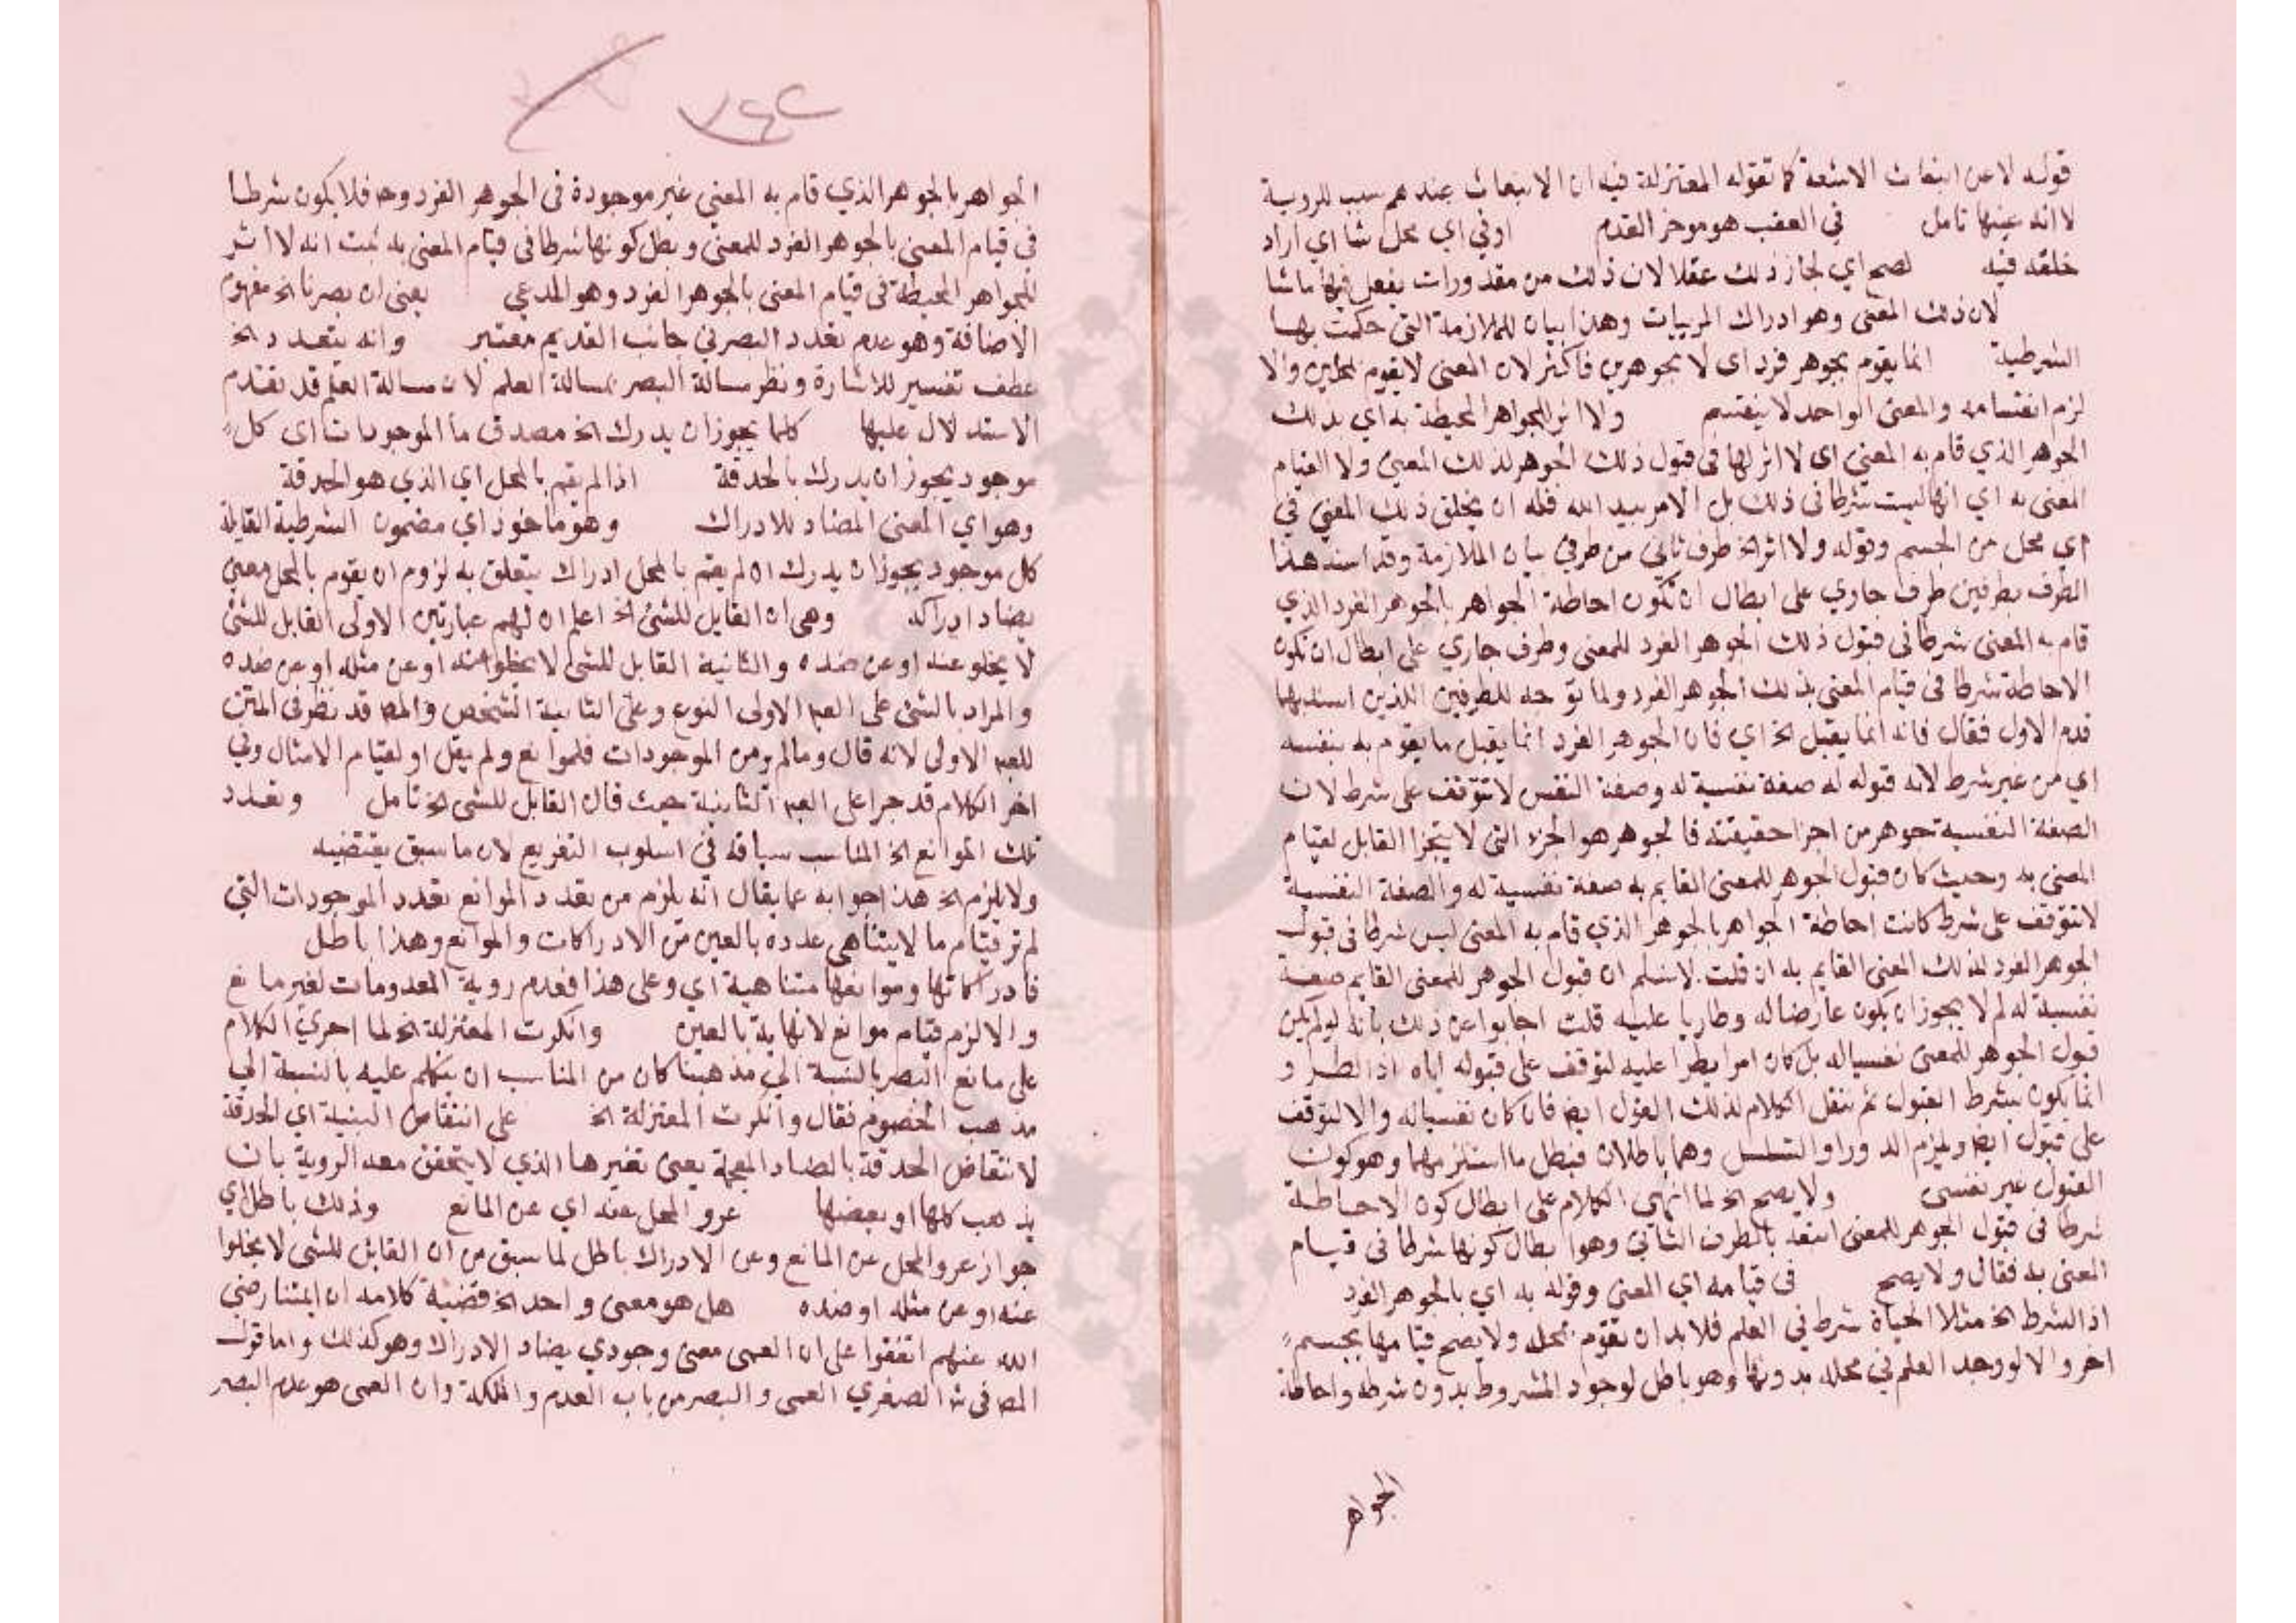 قوله لا عن انبعاث الاشعة كما تقوله المعتزلة فيه ان الانبعاث عندهم سبب للروية
لا انه عينها تامل في العقب هو موخر القدم او في اي محل شا اي اراد
خلقه فيه لصح اي لجاز ذلك عقلا لان ذلك من مقدورات يفعل فيها ما شا
لان ذلك المعنى وهو ادراك المرييات وهذا بيان للملازمة التي حكمت بها
الشرطية انما يقوم بجوهر فرد اى لا بجوهرين فاكثر لان المعنى لا يقوم بمحلين والا
لزم انقسامه والمعنى الواحد لا ينقسم ولا اثر للجواهر المحيطة به اي بذلك
الجوهر الذي قام به المعنى اى لا اثر لها فى قبول ذلك الجوهر لذلك المعنى ولا لقيام
المعنى به اي انها ليست شرطا فى ذلك بل الامر بيد الله فله ان يخلق ذلك المعنى في
اي محل من الجسم وقوله ولا اثر الخ طرف ثاني من طرفي بيان الملازمة وقد اسند هذا
الطرف بطرفين طرف جاري على ابطال ان تكون احاطة الجواهر بالجوهر الفرد الذي
قام به المعنى شرطا في قبول ذلك الجوهر الفرد للمعنى وطرف جاري على ابطال ان تكون
الاحاطة شرطا فى قيام المعنى بذلك الجوهر الفرد ولما توجه للطرفين اللذين اسند بهما
قدم الاول فقال فانه انما يقبل الخ اي فان الجوهر الفرد انما يقبل ما يقوم به بنفسه
اي من غير شرط لانه قبوله له صفة نفسية له وصفة النفس لا تتوقف على شرط لان
الصفة النفسية جوهر من اجزا حقيقته فالجوهر هو الجزء التي لا يتجزا القابل لقيام
المعنى به وحيث كان قبول الجوهر للمعنى القايم به صفة نفسية له والصفة النفسية
لا تتوقف على شرط كانت احاطة الجواهر بالجوهر الذي قام به المعنى ليس شرطا فى قبول
الجوهر الفرد لذلك المعنى القايم به ان قلت لا نسلم ان قبول الجوهر للمعنى القايم صفة
نفسية له لم لا يجوز ان يكون عارضا له وطاريا عليه قلت اجابوا عن ذلك بانه لو لم يكن
قبول الجوهر للمعنى نفسيا له بل كان امرا يطرا عليه لتوقف على قبوله اياه اذ الطرو
انما يكون بشرط القبول ثم ننقل الكلام لذلك القبول ايض فان كان نفسيا له والا لتوقف
على قبول ايض ويلزم الدور او التسلسل وهما باطلان فبطل ما استلزمهما وهو كون
القبول غير نفسى ولا يصح الخ لما انهى الكلام على ابطال كون الاحاطة
شرطا فى قبول الجوهر للمعنى اتبعه بالطرف الثاني وهو ابطال كونها شرطا فى قيام
المعنى به فقال ولا يصح فى قيامه اي المعنى وقوله به اي بالجوهر الفرد
اذ الشرط الخ مثلا الحياة شرط في العلم فلا بد ان تقوم بمحله ولا يصح قيامها بجسم
اخر والا لو وجد العلم في محله بدونها وهو باطل لوجود المشروط بدون شرطه واحاطة
الجواهر
٧٤٢
الجواهر بالجوهر الذي قام به المعنى غير موجودة فى الجوهر الفرد وح فلا يكون شرطا
فى قيام المعنى بالجوهر الفرد للمعنى وبطل كونها شرطا فى قيام المعنى به ثبت انه لا اثر
للجواهر المحيطة فى قيام المعنى بالجوهر الفرد وهو المدعي يعنى ان بصرنا الخ مفهوم
الاضافة وهو عدم تعدد البصر في جانب القديم معتبر وانه يتعدد الخ
عطف تفسير للاشارة ونظر مسالة البصر بمسالة العلم لان مسالة العلم قد تقدم
الاستدلال عليها كلما يجوز ان يدرك الخ مصدق ما الموجودات اى كل
موجود يجوز ان يدرك بالحدقة اذا لم يقم بالمحل اي الذي هو الحدقة
وهو اي المعنى المضاد للادراك وهو ماخوذ اي مضمون الشرطية القايلة
كل موجود يجوز ان يدرك ان لم يقم بالمحل ادراك يتعلق به لزوم ان يقوم بالمحل معنى
يضاد ادراكه وهى ان القابل للشئ الخ اعلم ان لهم عبارتين الاولى القابل للشئ
لا يخلو عنه او عن ضده والثانية القابل للشئ لا يخلو عنه او عن مثله او عن ضده
والمراد بالشئ على العبه الاولى النوع وعلى الثانية الشخص والمص قد نظر فى المتن
للعبه الاولى لانه قال وما لم ير من الموجودات فلموانع ولم يقل او لقيام الامثال وفي
اخر الكلام قد جرا على العبه الثانية حيث قال القابل للشى الخ تامل وتعدد
تلك الموانع الخ المناسب سياقه في اسلوب التفريع لان ما سبق يقتضيه
ولا يلزم الخ هذا جوابه عما يقال انه يلزم من تعدد الموانع تعدد الموجودات التي
لم تر قيام ما لا يتناهى عدده بالعين من الادراكات والموانع وهذا باطل
فادراكاتها وموانعها متناهية اي وعلى هذا فعدم روية المعدومات لغير مانع
والا لزم قيام موانع لا نهاية بالعين وانكرت المعتزلة الخ لما اجري الكلام
على مانع البصر بالنسبة الى مذهبنا كان من المناسب ان يتكلم عليه بالنسبة الي
مذهب الخصوم فقال وانكرت المعتزلة الخ على انتقاض البنية اي الحدقة
لانتقاض الحدقة بالضاد المعجمة يعنى تغيرها الذي لا يتحقق معه الروية بان
يذهب كلها او بعضها عرو المحل عنه اي عن المانع وذلك باطل اي
جواز عرو المحل عن المانع وعن الادراك باطل لما سبق من ان القابل للشى لا يخلوا
عنه او عن مثله او ضده هل هو معنى واحد الخ قضية كلامه ان ايمتنا رضي
الله عنهم اتفقوا على ان العمى معنى وجودي يضاد الادراك وهو كذلك واما قول
المص فى ش الصغري العمى والبصر من باب العدم والملكة وان العمى هو عدم البصر